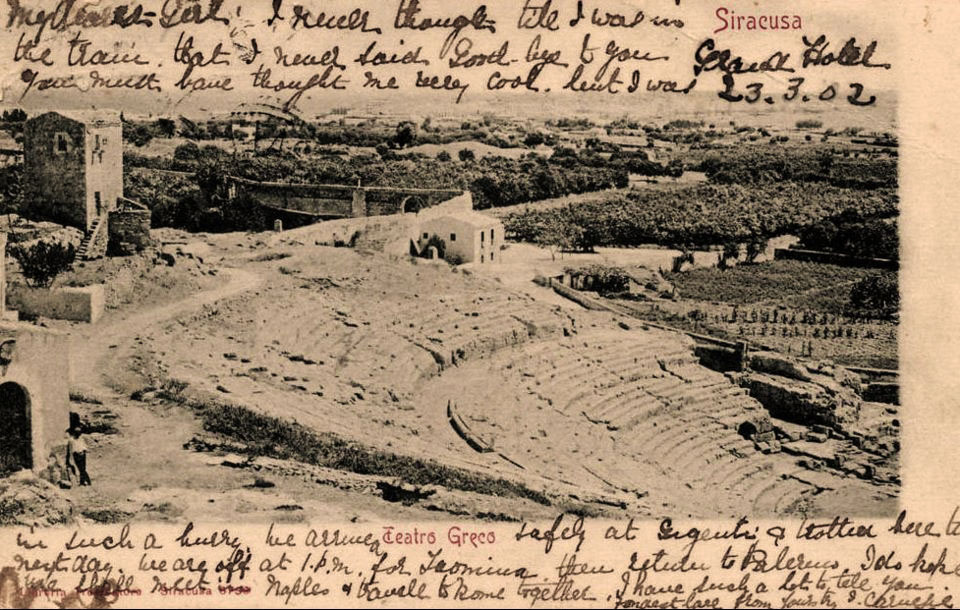 My dearest Girl. I never thought till I was in
Siracusa
the train. that I never said Good-bye to you
Grand Hotel
You must have thought me very cool. but I was
23.3.02
in such a hurry. We arrived safely at Girgenti & trotted here to
Teatro Greco
next day. We are off at 1.P.M. for Taormina then return to Palermo. I do hope
we shall meet in Naples & travel to Rome together. I have such a lot to tell you
Siracusa
Fondest love from